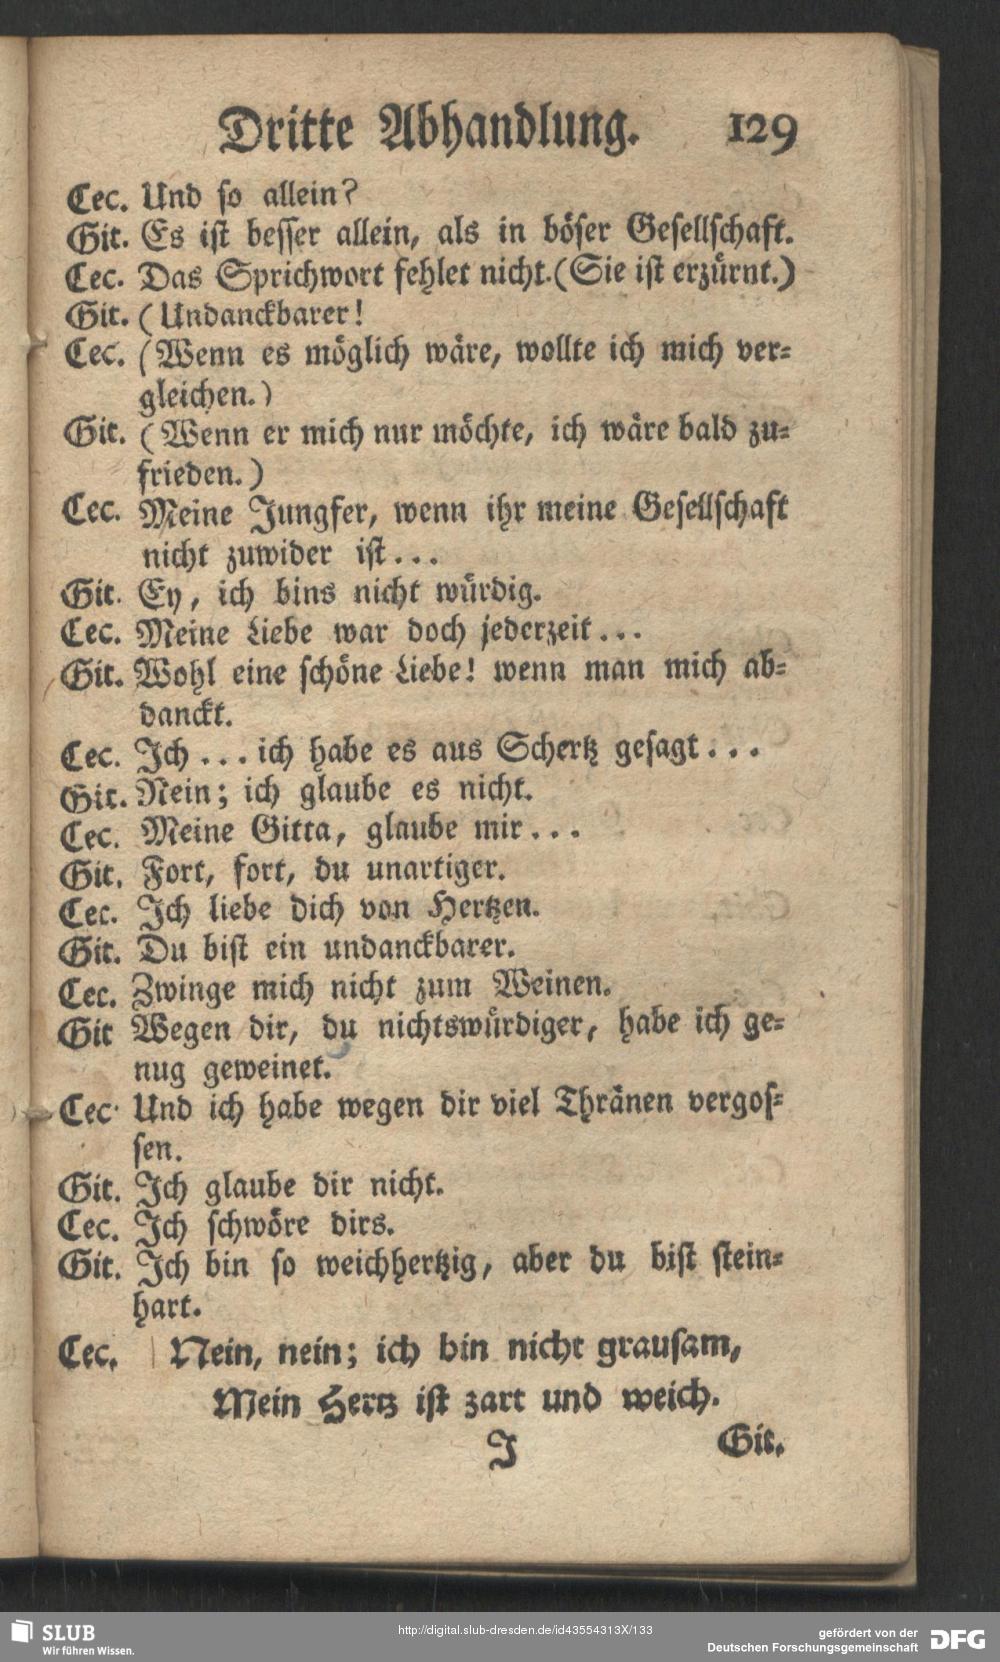 Dritte Abhandlung. 129
Cec. Und so allein?
Git. Es ist besser allein, als in böser Gesellschaft.
Cec. Das Sprichwort fehlet nicht. (Sie ist erzürnt.)
Git. (Undanckbarer!
Cec. (Wenn es möglich wäre, wollte ich mich ver=
gleichen.)
Git. (Wenn er mich nur möchte, ich wäre bald zu=
frieden.)
Cec. Meine Jungfer, wenn ihr meine Gesellschaft
nicht zuwider ist...
Git. Ey, ich bins nicht würdig.
Cec. Meine Liebe war doch jederzeit...
Git. Wohl eine schöne Liebe! wenn man mich ab=
danckt.
Cec. Ich... ich habe es aus Schertz gesagt...
Git. Nein; ich glaube es nicht.
Cec. Meine Gitta, glaube mir...
Git. Fort, fort, du unartiger.
Cec. Ich liebe dich von Hertzen.
Git. Du bist ein undanckbarer.
Cec. Zwinge mich nicht zum Weinen.
Git Wegen dir, du nichtswürdiger, habe ich ge=
nug geweinet.
Cec. Und ich habe wegen dir viel Thränen vergos=
sen.
Git. Ich glaube dir nicht.
Cec. Ich schwöre dirs.
Git. Ich bin so weichhertzig, aber du bist stein=
hart.
Cec. Nein, nein; ich bin nicht grausam,
Mein Hertz ist zart und weich.
J Git.
SLUB
Wir führen Wissen.
http://digital.slub-dresden.de/id43554313X/133
gefördert von der
Deutschen Forschungsgemeinschaft
DFG